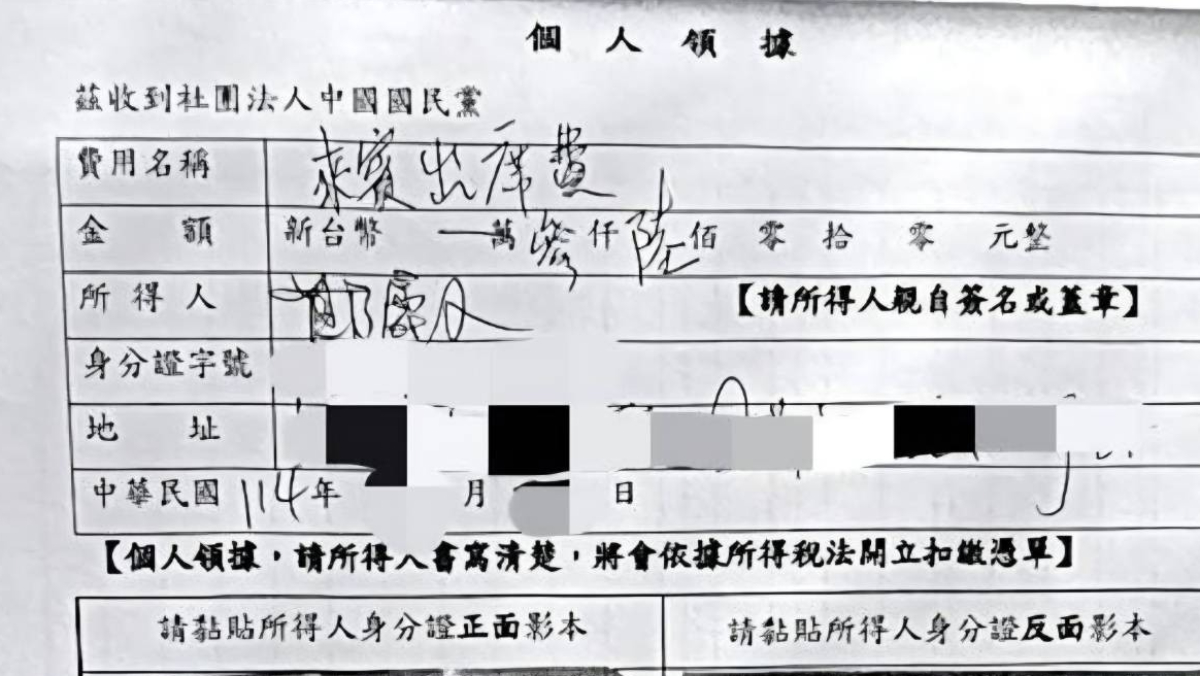 個人領據
茲收到社團法人中國國民黨
費用名稱 來賓出席費
金額 新台幣 一萬參仟陸佰零拾零元整
所得人 【請所得人親自簽名或蓋章】
身分證字號
地址
中華民國114年 月 日
【個人領據，請所得人書寫清楚，將會依據所得稅法開立扣繳憑單】
請黏貼所得人身分證正面影本 請黏貼所得人身分證反面影本